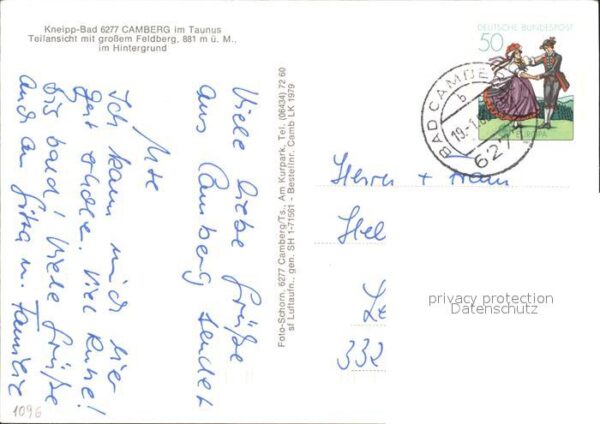 Kneipp-Bad 6277 CAMBERG im Taunus
Teilansicht mit großem Feldberg, 881 m ü. M.,
im Hintergrund
Viele liebe Grüße
aus Camberg sendet
Ute
Ich kann mich hier
gut erholen. Viel Ruhe!
Bis bald! Viele Grüße
auch an Gitta u. Familie
Foto-Schorn, 6277 Camberg/Ts., Am Kurpark, Tel. (06434) 72 60
sf Luftaufn., gen. SH 1-71561 - Bestellnr. Camb LK 1979
DEUTSCHE BUNDESPOST
50
EUROPA
BAD CAMBE
b
19.-1.8
6277
Herrn + Frau
Hel
Le
332
privacy protection
Datenschutz
1096